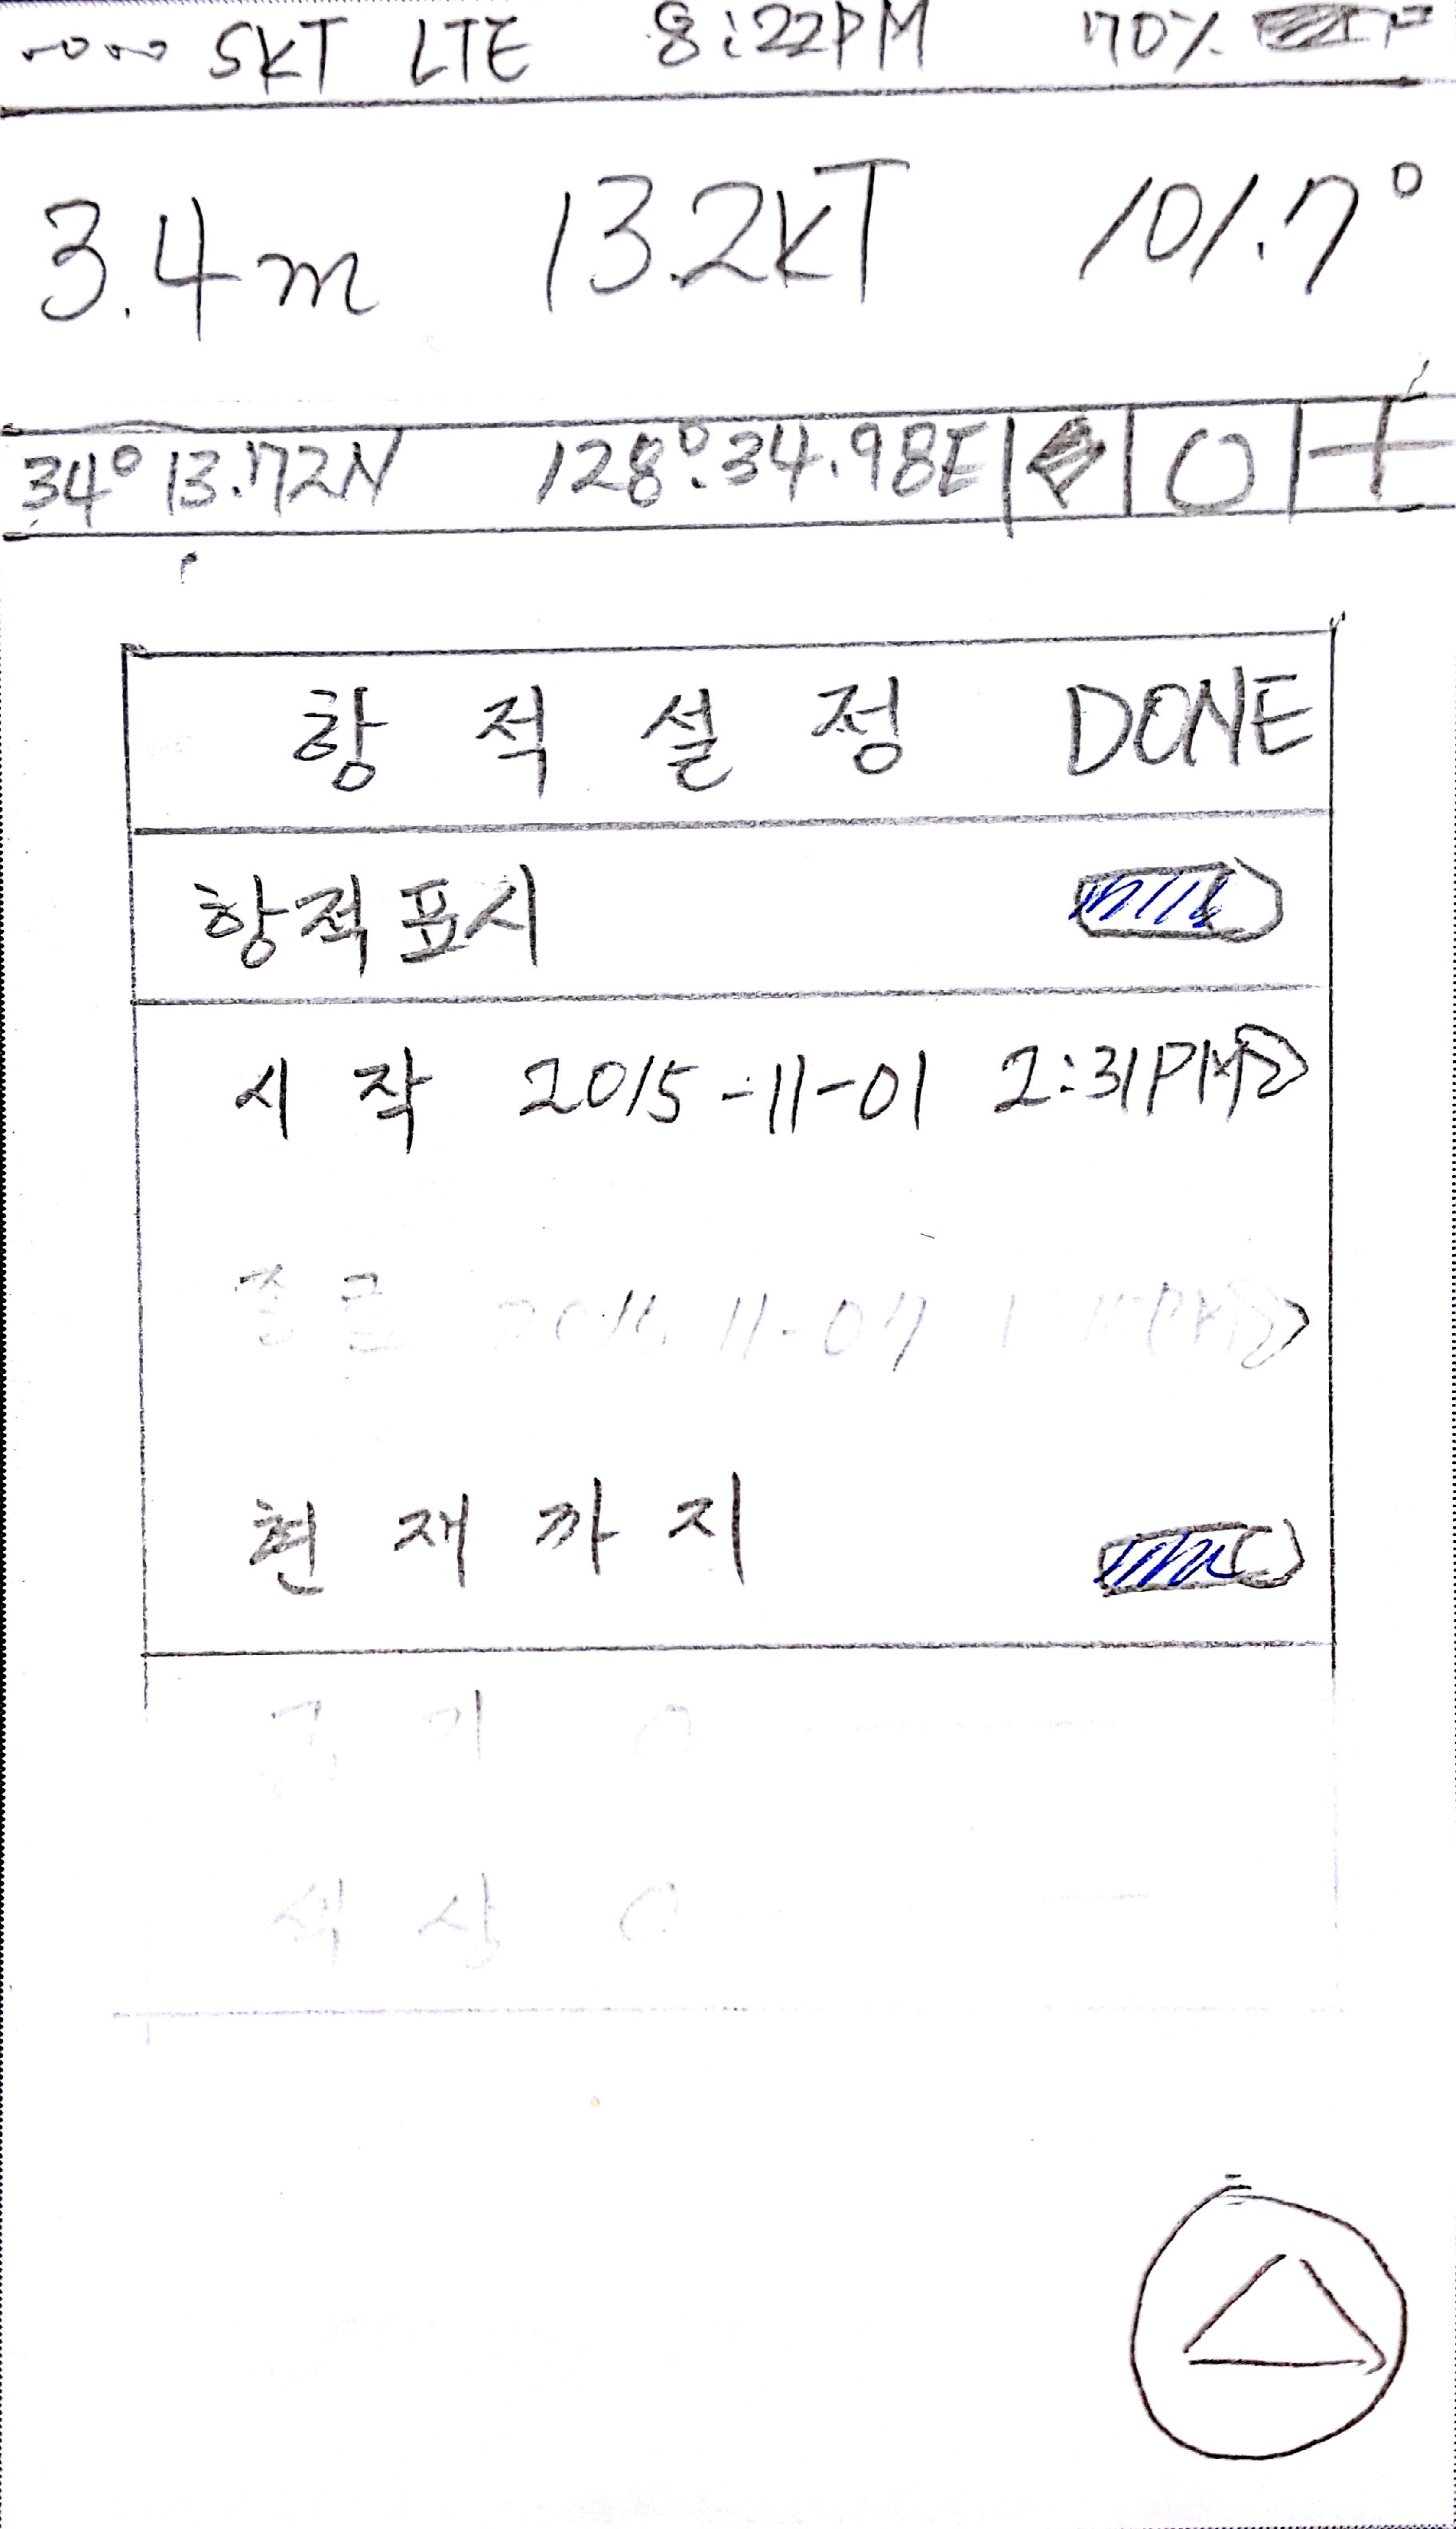 SKT LTE 8:22PM 70%
3.4m 13.2kT 101.7°
34° 13.72N 128°.34.98E
항적설정 DONE
항적표시
시작 2015-11-01 2:31PM
11-07
현재까지
색상